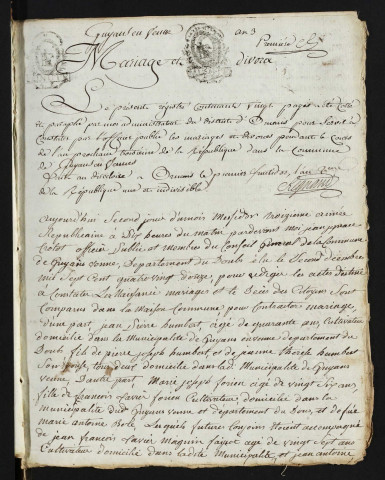 Guyans en Venne an 3
Première
Mariage et divorce
Le présent registre contenant vingt pages a été coté
et paraphé par nous administrateur du district d'Ornans pour servir à
constater par l'officier public les mariages et divorces pendant le cours
de l'an prochain troisième de la République dans la Commune
de Guyans en Vennes
fait au directoire à Ornans le premier fructidor l'an deux
de la République une et indivisible
aujourd'hui Second jour du mois Messidor troizieme année
Republicaine à Dix heures du matin pardevant moi jean ignace
Crotot officier public et membre du Conseil General de la Commune
de Guyans venne, Departement du Doubs élu le Second décembre
mil Sept Cent quatre vingt douze, pour rediger les actes destinés
à Constater les Naissance mariages et les Décès des Citoyens Sont
Comparus dans la Maison Commune, pour Contracter mariage,
d'une part jean pierre humbert, agé de quarante ans, Cultivateur
domicilié dans la Municipalité de Guyans en venne departement du
Doubs fils de pierre joseph humbert et de jeanne therese humbert
Son epouse, tous deux domicilié dans la de Municipalité de Guyans
venne, Dautre part Marie joseph forien agé de vingt Six ans
fille de francois Xavier forien Cultivateur domicilié dans la
Municipalité dud Guyans venne et departement du Doubs, et defue
marie antoine Bole, Lesquels futures Conjoins étoient accompagné
de jean francois Xavier Magnin agé de vingt Sept ans
Cultivateur domicilié dans ladite Municipalité, et jean antoine